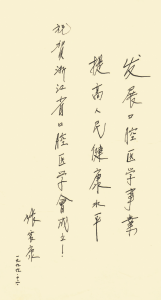 发展口腔医学事业
提高人民健康水平
祝贺浙江省口腔医学会成立！
张震康
一九九九.十.